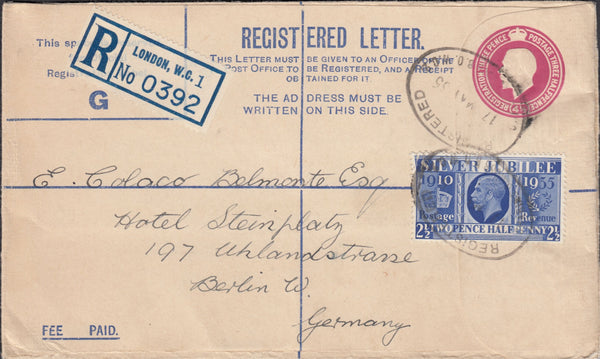 REGISTERED LETTER.
This
THIS LETTER MUST BE GIVEN TO AN OFFICER OF THE
POST OFFICE TO BE REGISTERED, AND A RECEIPT
OBTAINED FOR IT.
THE ADDRESS MUST BE
WRITTEN ON THIS SIDE.
G
R
LONDON, W.C.1
No 0392
REGISTRATION THREE PENCE POSTAGE THREE HALFPENCE
REGISTERED
17 MAY 35
SILVER JUBILEE
1910 1935
Postage Revenue
2½ TWO PENCE HALFPENNY 2½
E. Colaco Belmonte Esq
Hotel Steinplatz
197 Uhlandstrasse
Berlin W.
Germany
FEE PAID.